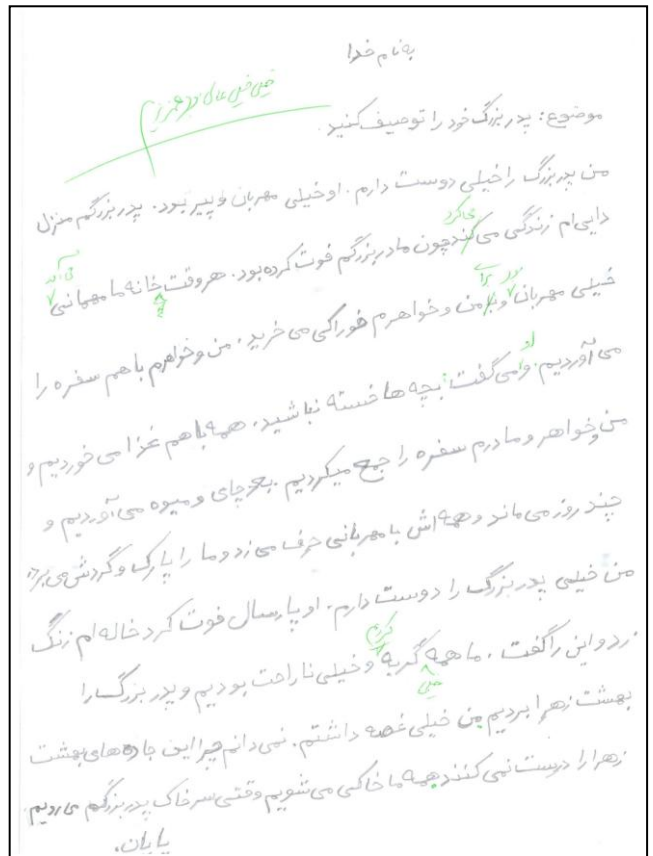 به نام خدا
خیلی خیلی عالی بود عزیزم
موضوع: پدر بزرگ خود را توصیف کنید.
من پدر بزرگ را خیلی دوست دارم. او خیلی مهربان و پیر بود. پدر بزرگم منزل
می کرد
دایی ام زندگی می کند چون مادر بزرگم فوت کرده بود. هر وقت خانه ما مهمانی می آمد
بود برای
خیلی مهربان و برا من و خواهرم خوراکی می خرید. من و خواهرم با هم سفره را
او
می آوردیم. و می گفت: بچه ها خسته نباشید. همه با هم غذا می خوردیم و
من و خواهر و مادرم سفره را جمع میکردیم. بعد چای و میوه می آوردیم و
چند روز می ماند و همه اش با مهربانی حرف می زد و ما را پارک و گردش می برد
من خیلی پدر بزرگ را دوست دارم. او پارسال فوت کرد خاله ام زنگ
زد و این را گفت. ما همه گریه کردیم و خیلی ناراحت بودیم و پدر بزرگ را
خیلی
بهشت زهرا بردیم من خیلی غصه داشتم. نمی دانم چرا این جاده های بهشت
زهرا را درست نمی کنند همه ما خاکی می شویم وقتی سر خاک پدر بزرگم می رویم.
پایان.